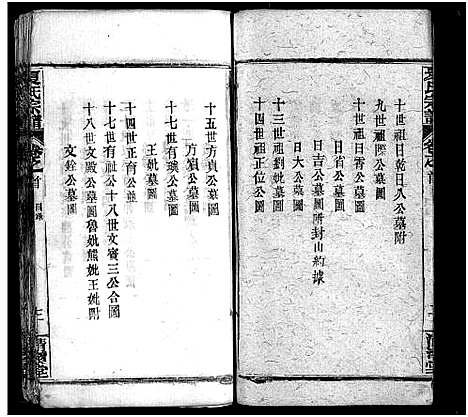 十世祖日乾日八公墓附
九世祖陛公墓圖
十世祖日霄公墓圖
日省公墓圖
日吉公墓圖附封山約據
日大公墓圖
十三世祖劉妣墓圖
十四世祖正位公圖
夏氏宗譜
卷之首
目錄
十五世方貞公墓圖
方貞公墓圖
十七世有璵公墓圖
王妣墓圖
十四世正育公墓
十七世有祉公十八世文賓三公合圖
十八世文殿公墓圖魯妣熊妣王妣附
文銓公墓圖